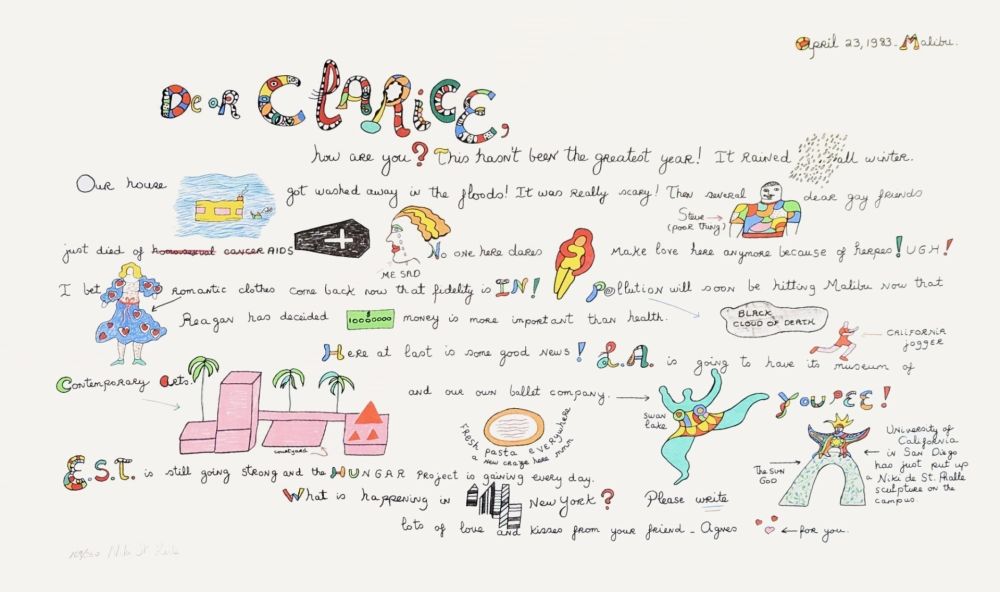 April 23, 1983 - Malibu.
Dear CLARICE,
how are you? This hasn't been the greatest year! It rained all winter.
Our house got washed away in the floods! It was really scary! Then several dear gay friends
Steve →
(poor thing)
just died of homosexual cancer AIDS No one here dares Make love here anymore because of herpes! UGH!
ME SAD
I bet romantic clothes come back now that fidelity is IN! Pollution will soon be hitting Malibu now that
Reagan has decided 10000000 money is more important than health.
BLACK
CLOUD OF DEATH
CALIFORNIA
jogger
Here at last is some good news! L.A. is going to have its museum of
Contemporary Arts. and our own ballet company. → YOUPEE!
swan
lake
courtyard
FRESH PASTA EVERYWHERE
a new craze here
The SUN
GOD
University of
California
in San Diego
has just put up
a Niki de St. Phalle
sculpture on the
campus.
E.S.T. is still going strong and the HUNGAR Project is gaining every day.
What is happening in New York? Please write
lots of love and kisses from your friend - Agnes ← for you.